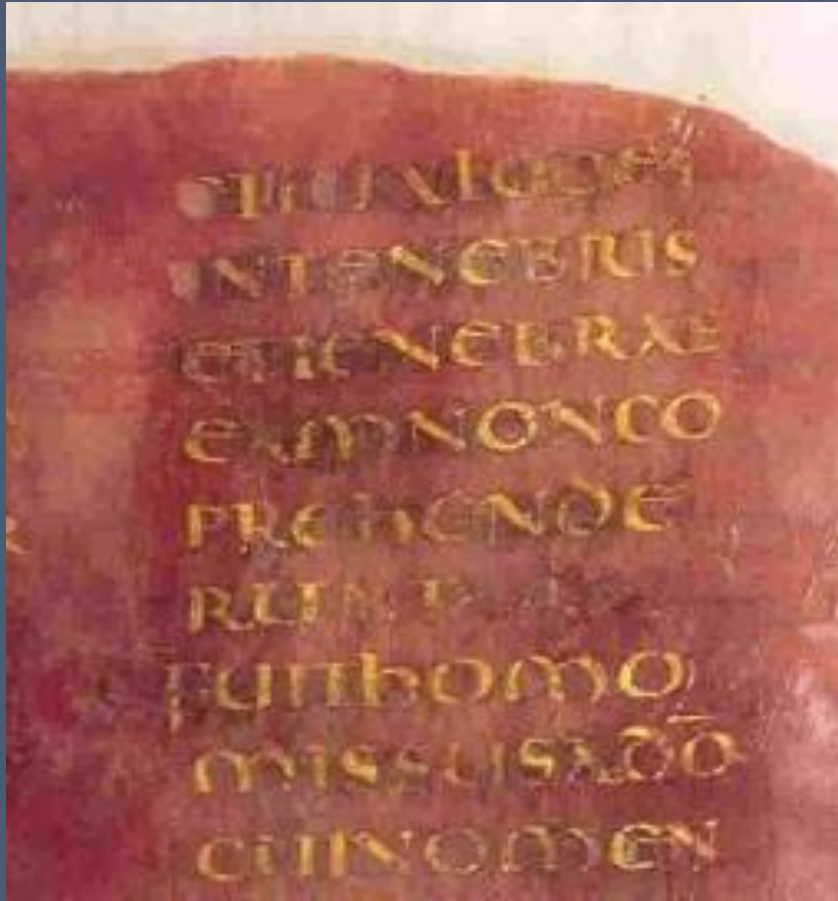 ETLUXLUCET
INTENEBRIS
ETTENEBRAE
EAMNONCO
PREHENDE
RUNT
FUITHOMO
MISSUSAD̅O̅
CUINOMEN